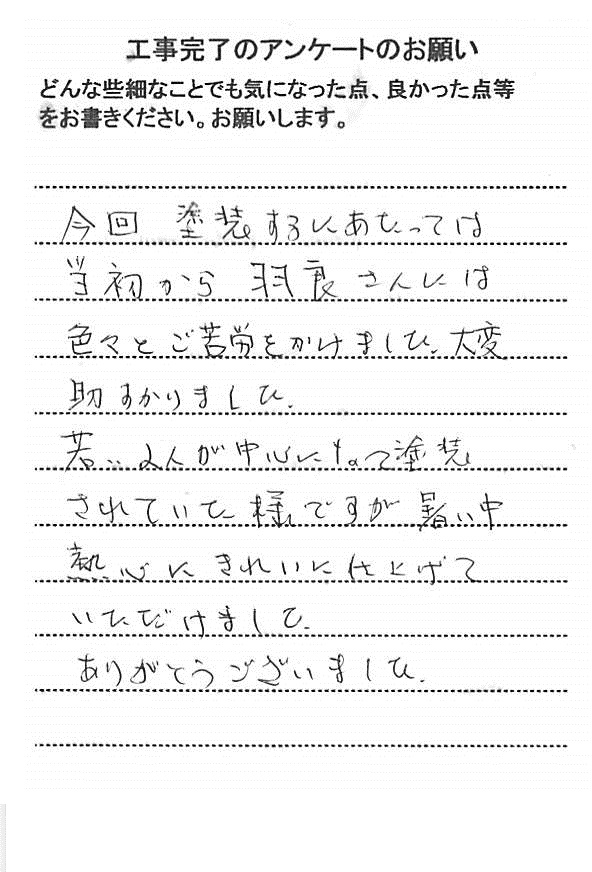 工事完了のアンケートのお願い
どんな些細なことでも気になった点、良かった点等
をお書きください。お願いします。
今回 塗装するにあたっては
当初から 羽良さんには
色々とご苦労をかけました。大変
助すかりました。
若い2人が中心になって塗装
されていた様ですが 暑い中
熱心にきれいに仕上げて
いただけました。
ありがとうございました。